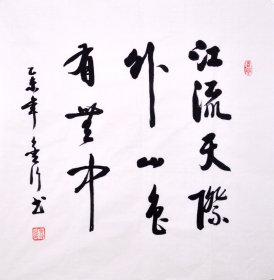 江流天際
外山色
有無中
乙未年金行书